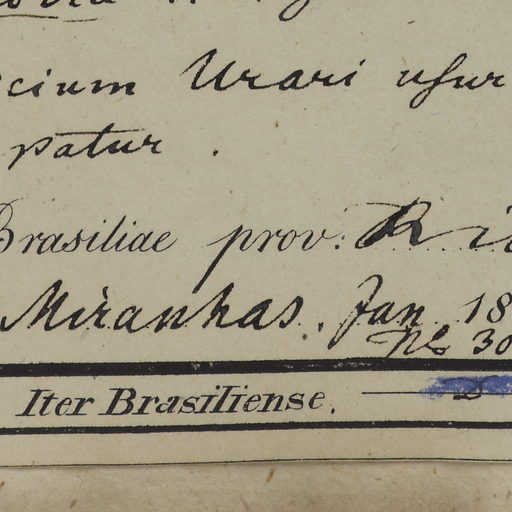 cium Urari usur
patur .
Brasiliae prov. Ri
Miranhas. Jan. 18
No 30
Iter Brasiliense.